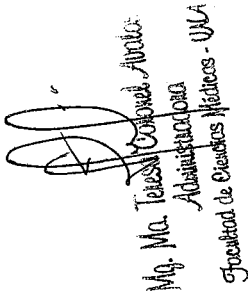 Mg. Ma. Teresa Coronel Avalos
Administradora
Facultad de Ciencias Médicas - UCA